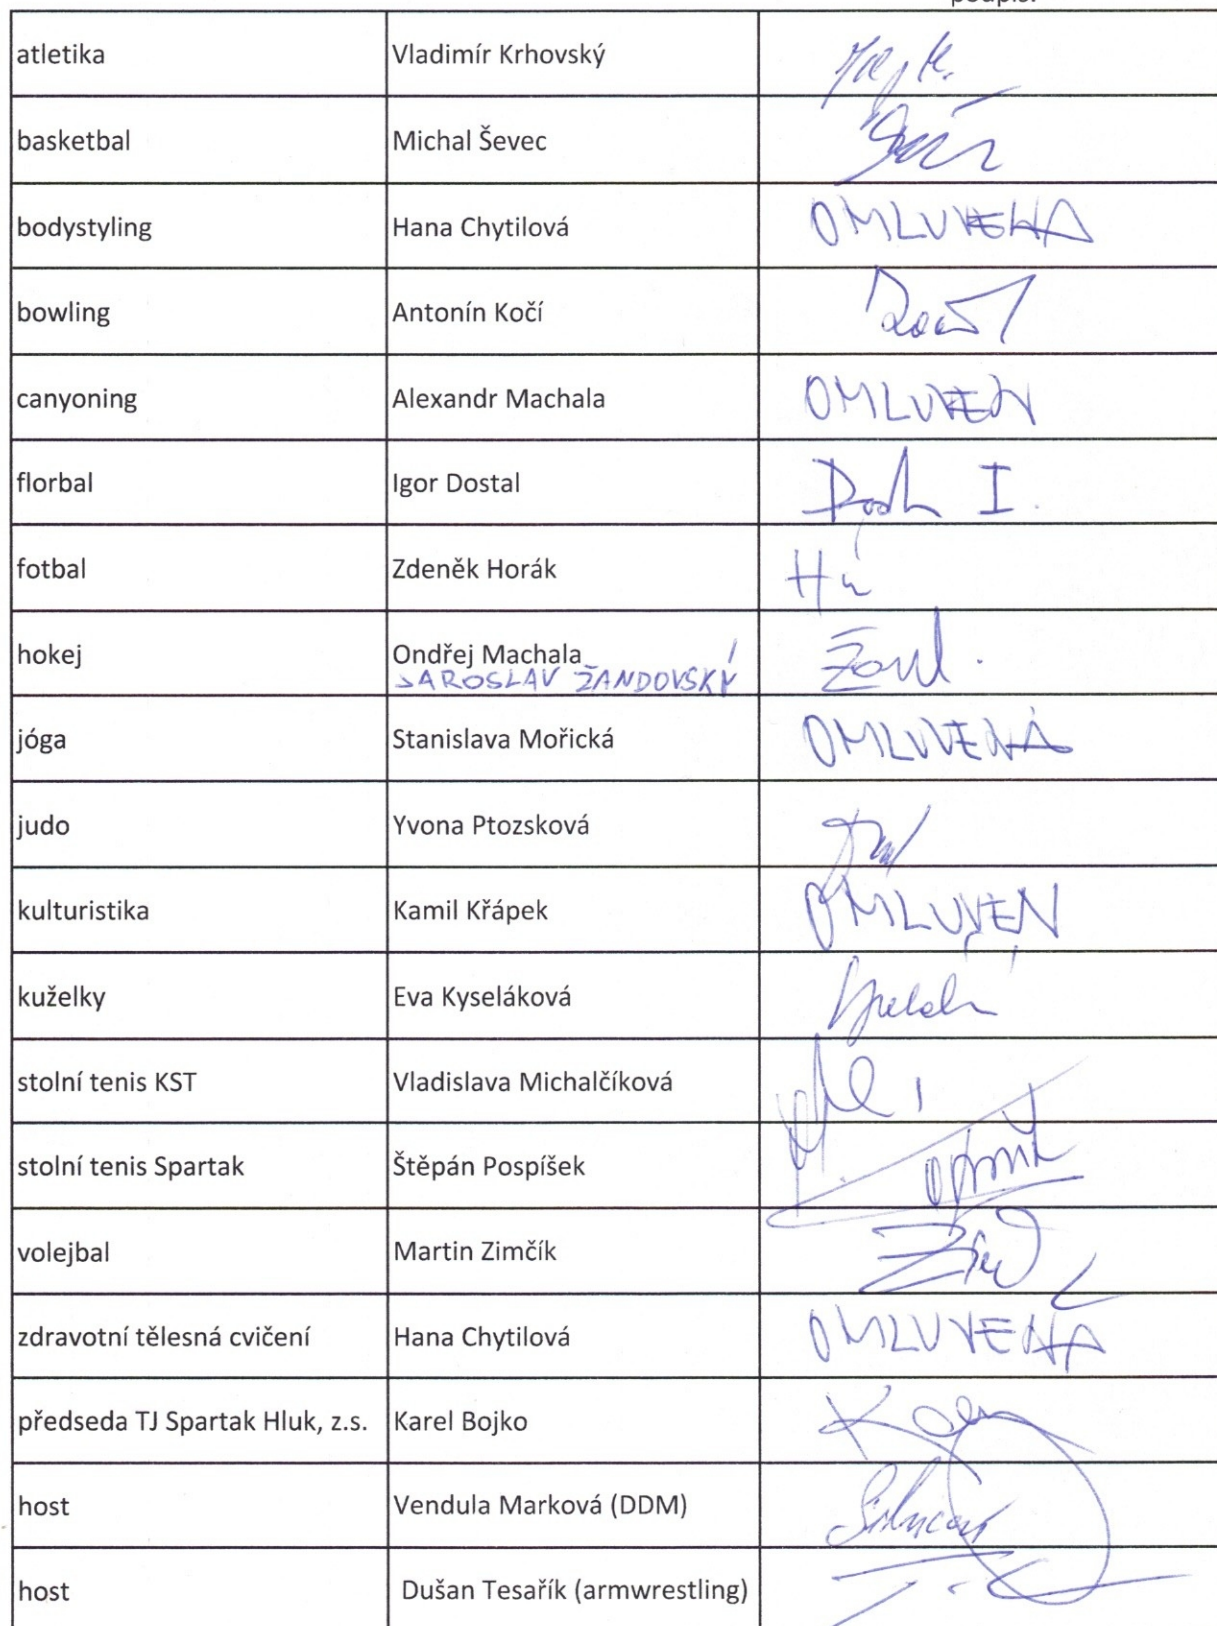 podpis:
atletika Vladimír Krhovský
basketbal Michal Ševec
bodystyling Hana Chytilová OMLUVENA
bowling Antonín Kočí
canyoning Alexandr Machala OMLUVEN
florbal Igor Dostal I.
fotbal Zdeněk Horák
hokej Ondřej Machala
JAROSLAV ŽANDOVSKÝ
jóga Stanislava Mořická OMLUVENA
judo Yvona Ptozsková
kulturistika Kamil Křápek OMLUVEN
kuželky Eva Kyseláková
stolní tenis KST Vladislava Michalčíková
stolní tenis Spartak Štěpán Pospíšek
volejbal Martin Zimčík
zdravotní tělesná cvičení Hana Chytilová OMLUVENA
předseda TJ Spartak Hluk, z.s. Karel Bojko
host Vendula Marková (DDM)
host Dušan Tesařík (armwrestling)